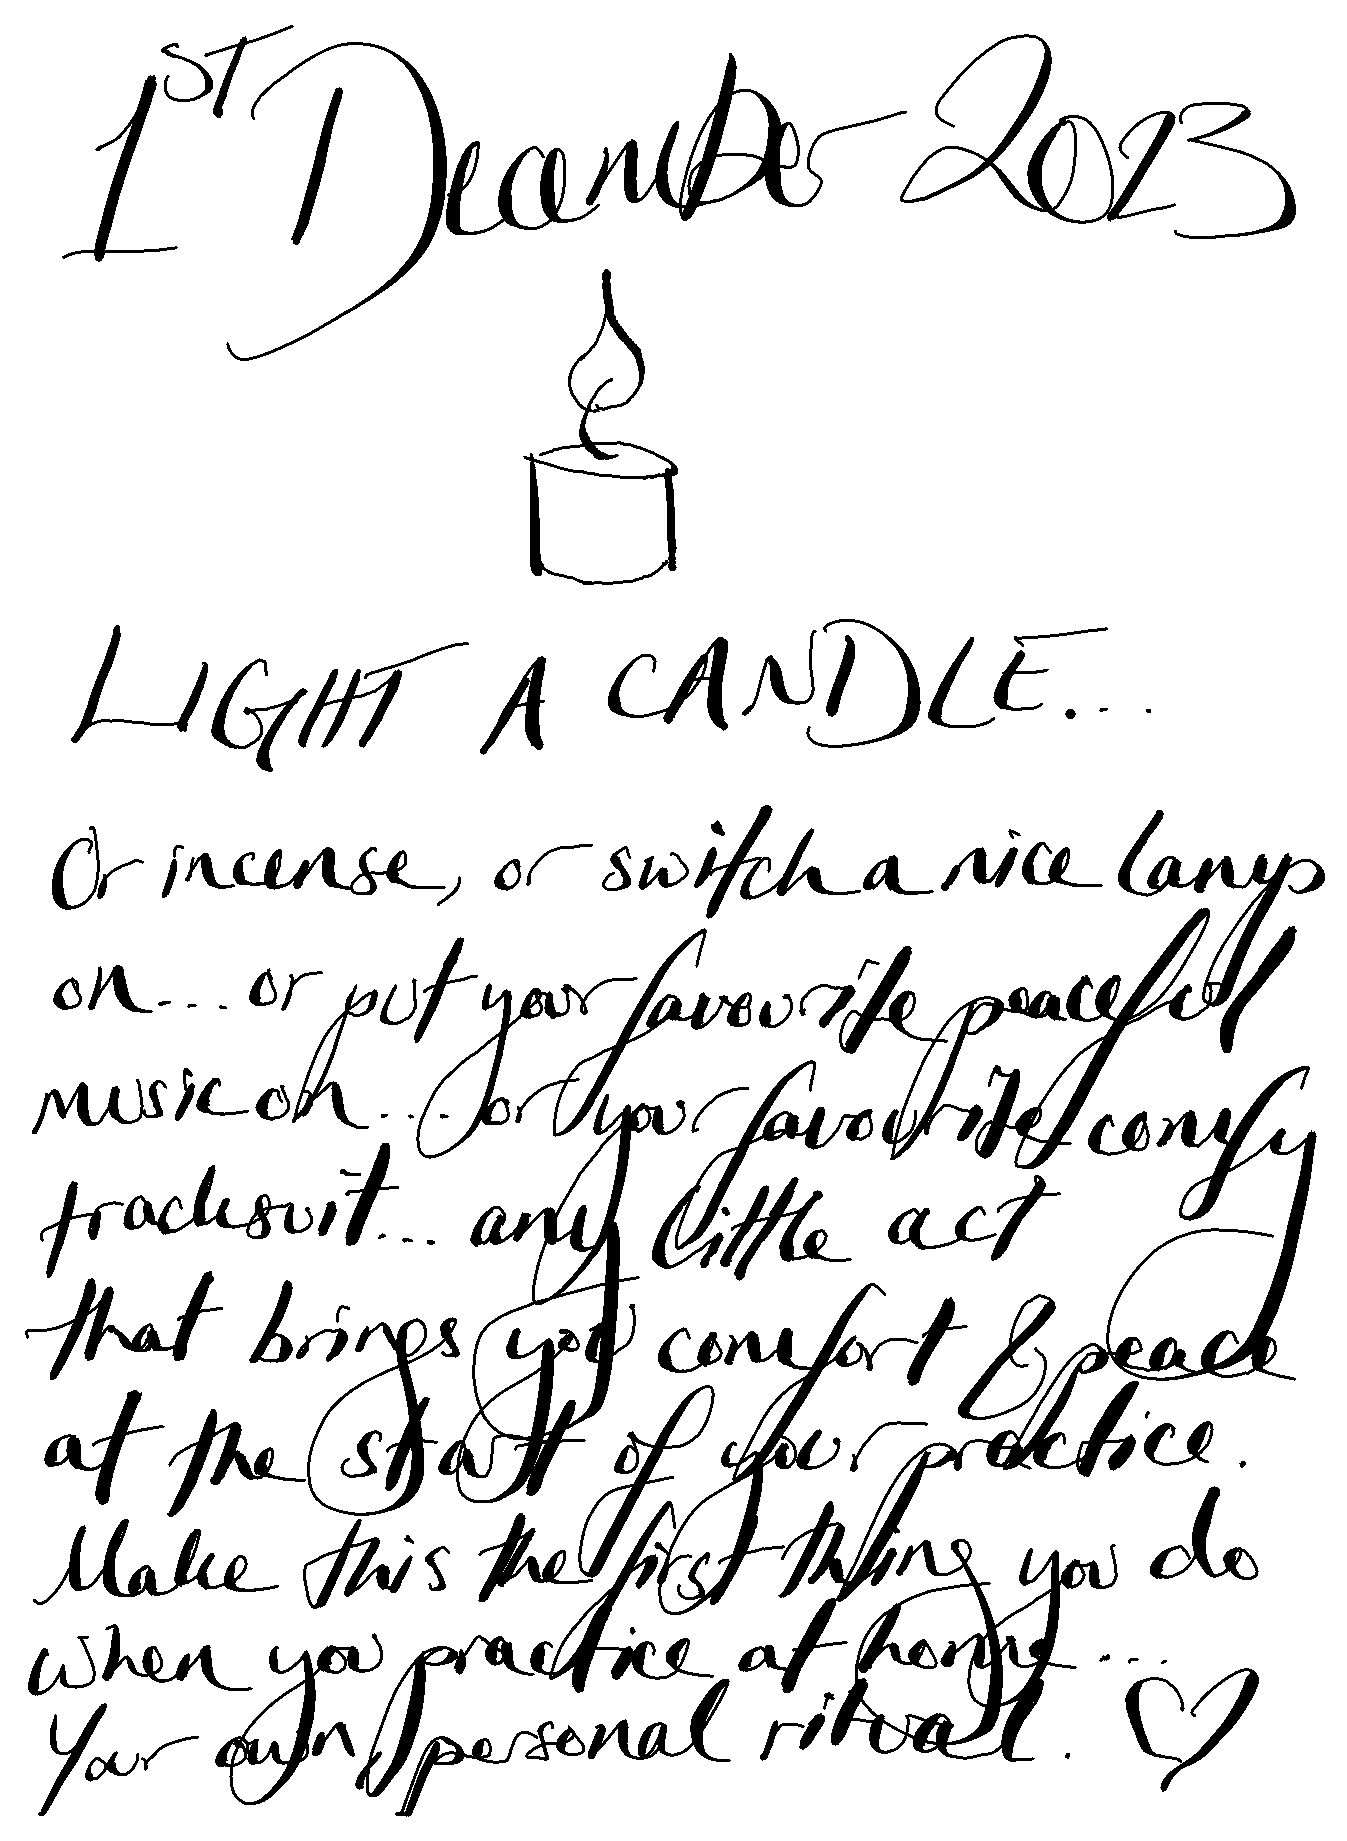 1ST December 2023
LIGHT A CANDLE...
Or incense, or switch a nice lamp
on... or put your favourite peaceful
music on.... or your favourite comfy
tracksuit... any little act
that brings you comfort & peace
at the start of your practice.
Make this the first thing you do
when you practice at home...
Your own personal ritual.